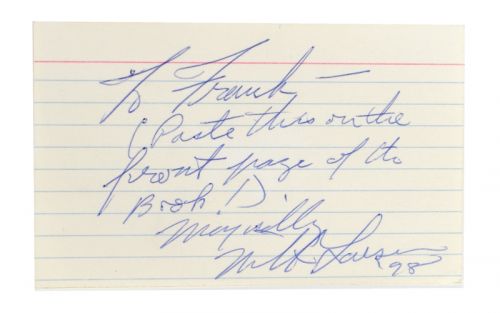 To Frank –
(Paste this on the
front page of the
Book!).
Magically
Milt Larsen
98